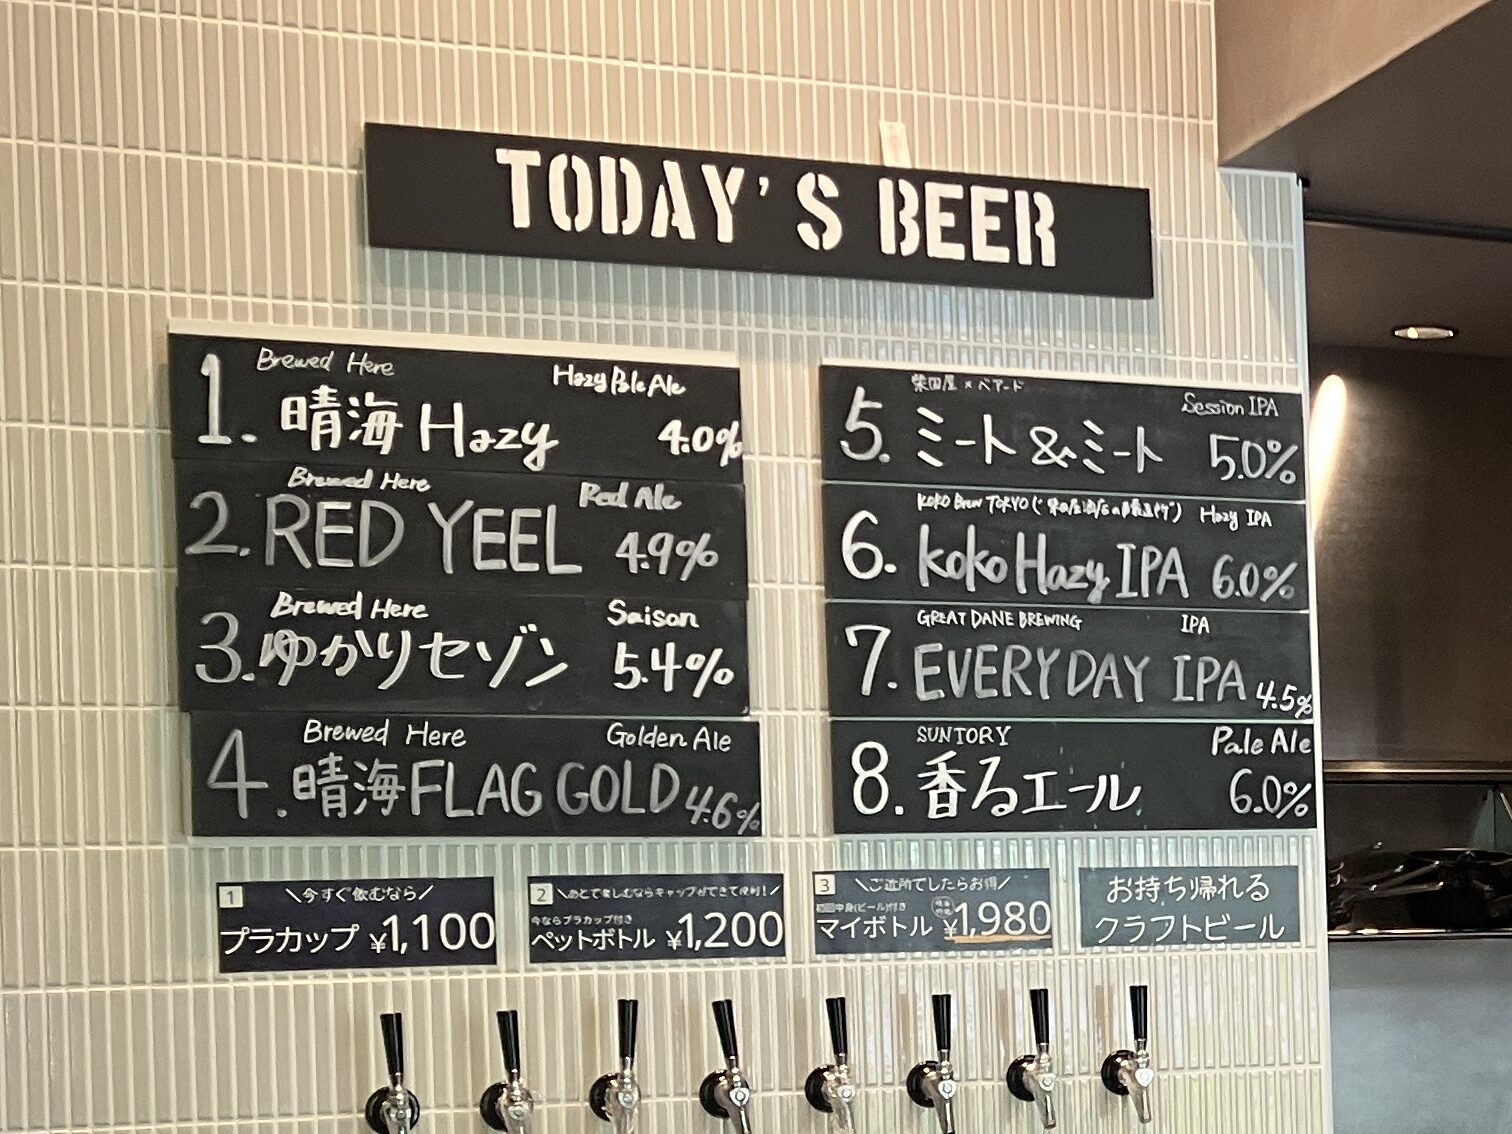 TODAY'S BEER
1. Brewed Here Hazy Pale Ale
晴海 Hazy 4.0%
2. Brewed Here Red Ale
RED YEEL 4.9%
3. Brewed Here Saison
ゆかりセゾン 5.4%
4. Brewed Here Golden Ale
晴海 FLAG GOLD 4.6%
5. 柴田屋×ベアード Session IPA
ミート&ミート 5.0%
6. KOKO Brew TOKYO Hazy IPA
koko Hazy IPA 6.0%
7. GREAT DANE BREWING IPA
EVERY DAY IPA 4.5%
8. SUNTORY Pale Ale
香るエール 6.0%
1 \今すぐ飲むなら/
プラカップ ¥1,100
2 \あとで楽しむならキャップができて便利!/
今ならプラカップ付き
ペットボトル ¥1,200
3 \ご近所でしたらお得/
初回中身(ビール)付き
マイボトル ¥1,980
お持ち帰れる
クラフトビール